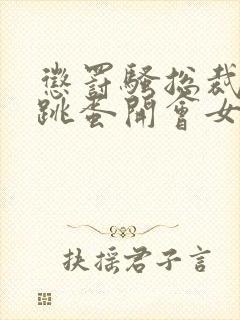 懲罰騷总裁
跳蛋開會女
扶摇君子言